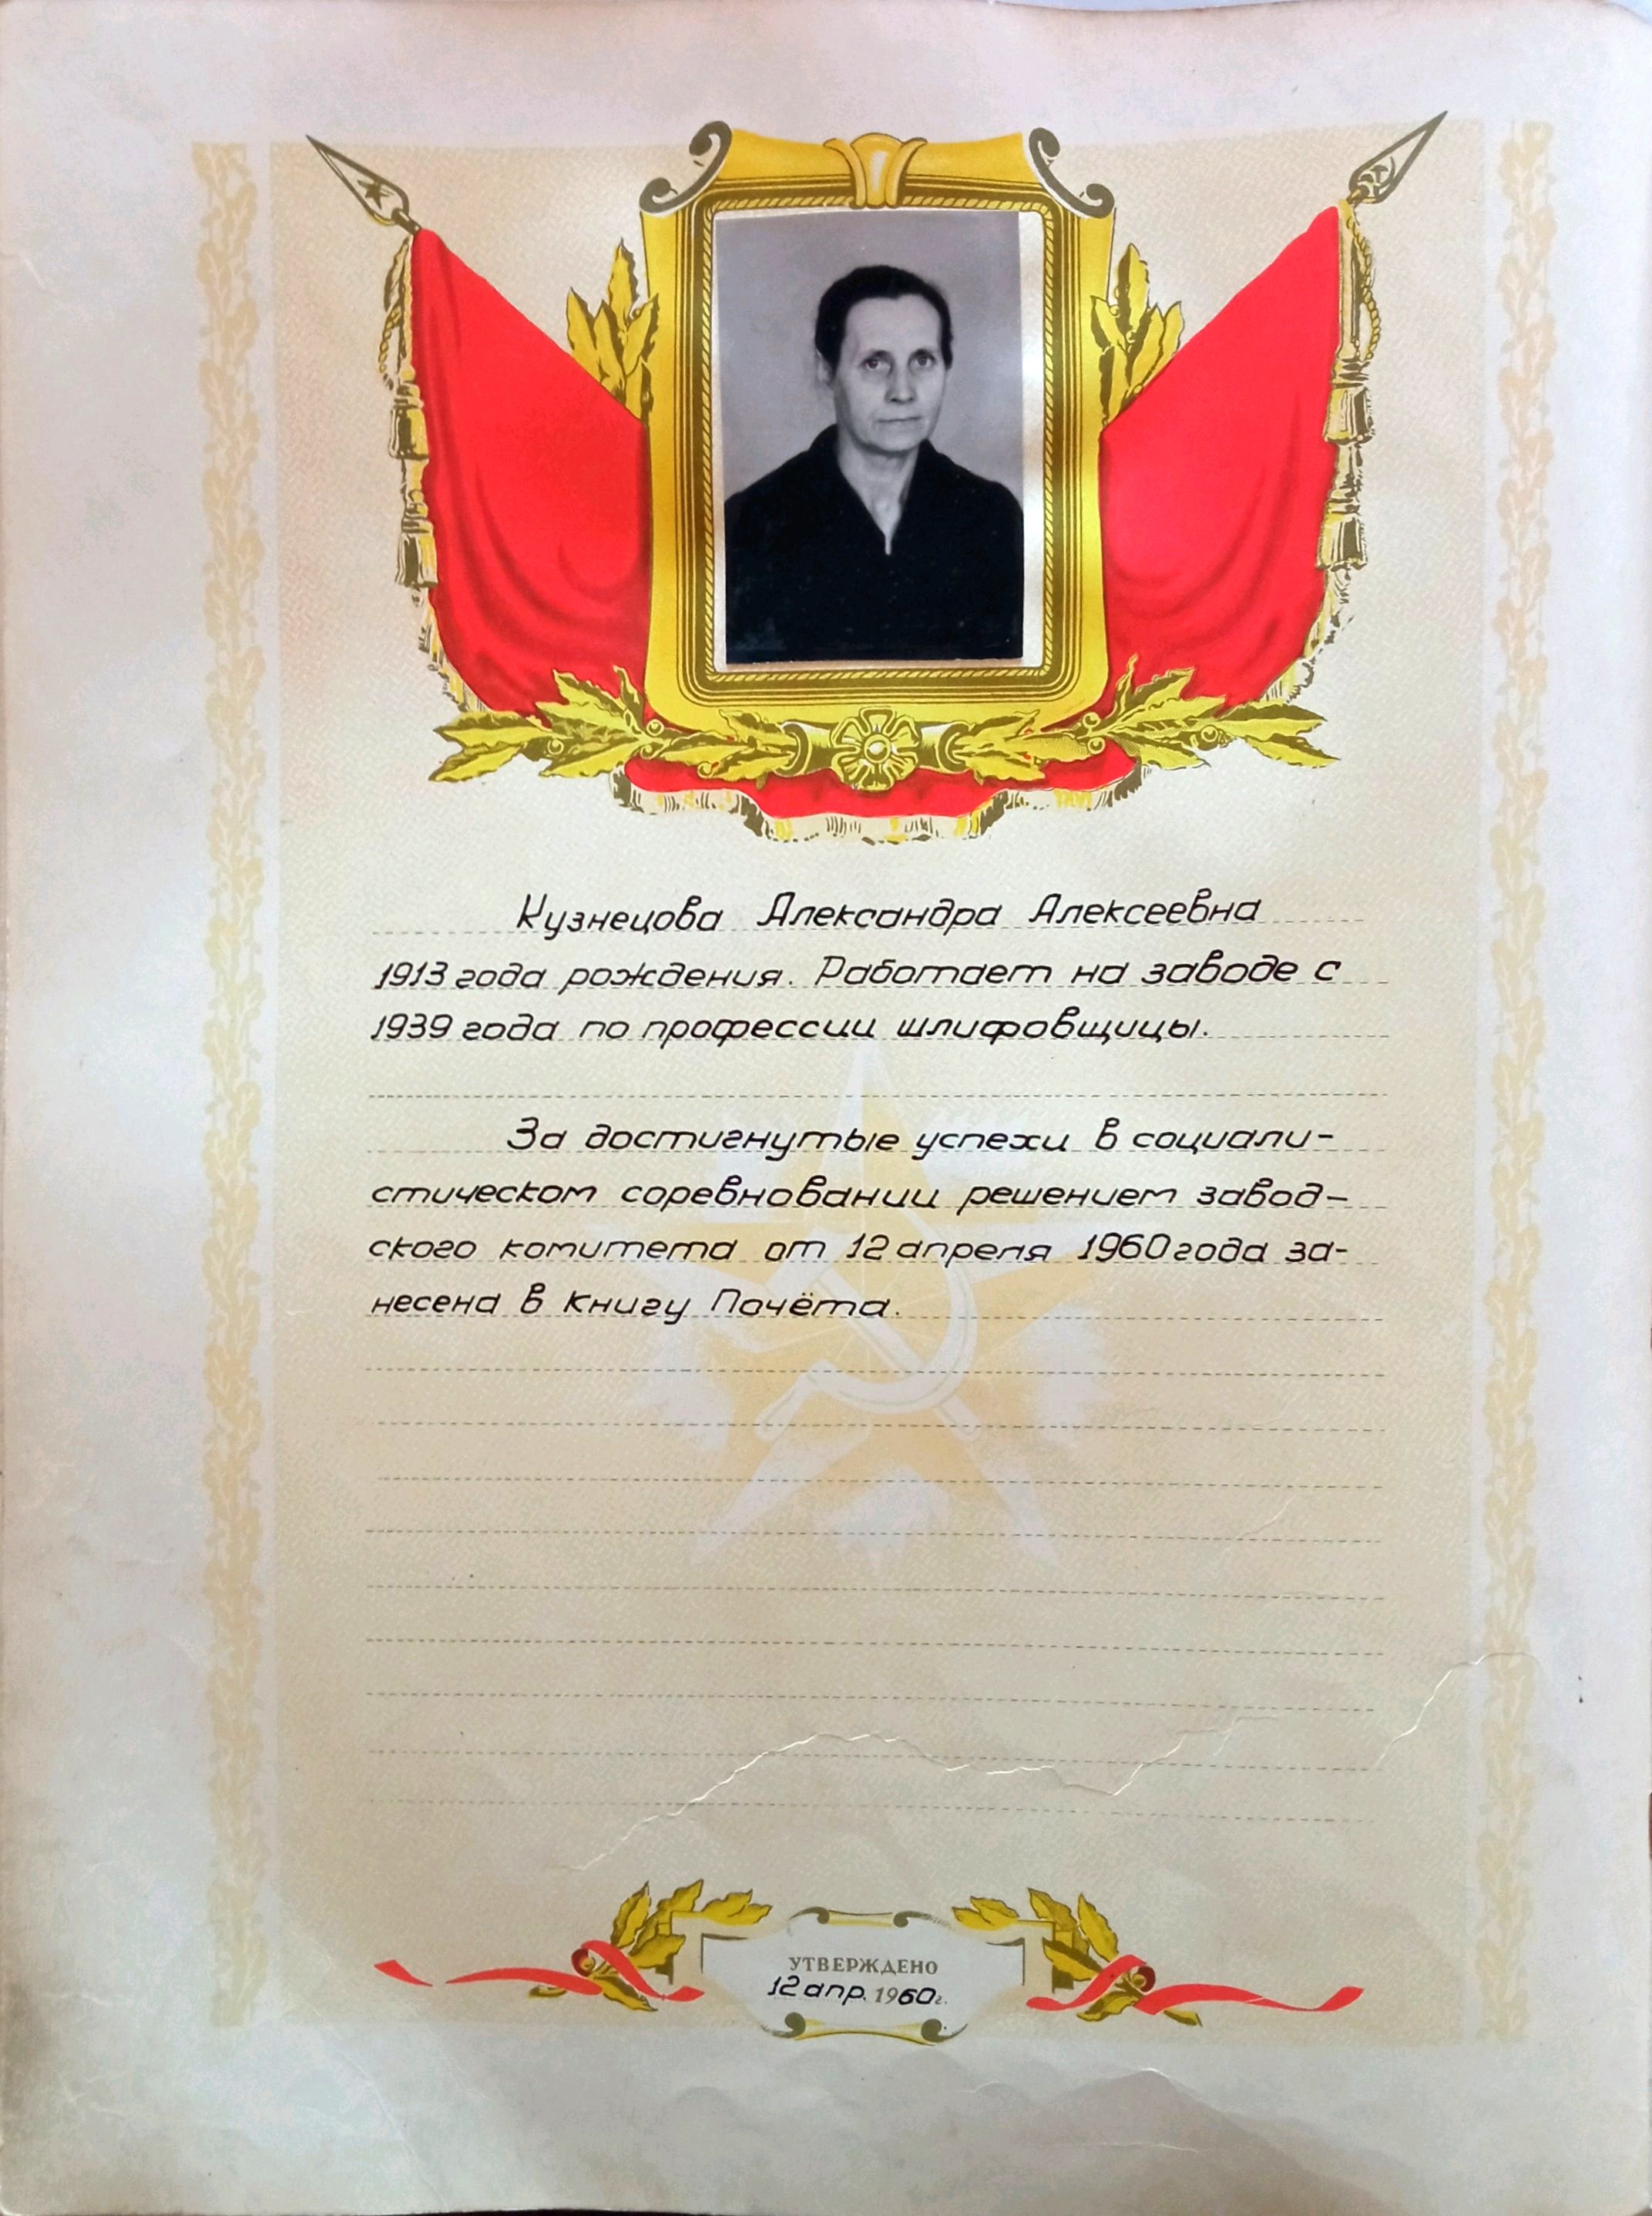 Кузнецова Александра Алексеевна
1913 года рождения. Работает на заводе с
1939 года по профессии шлифовщицы.
За достигнутые успехи в социали-
стическом соревновании решением завод-
ского комитета от 12 апреля 1960 года за-
несена в Книгу Почёта.
УТВЕРЖДЕНО
12 апр. 1960г.